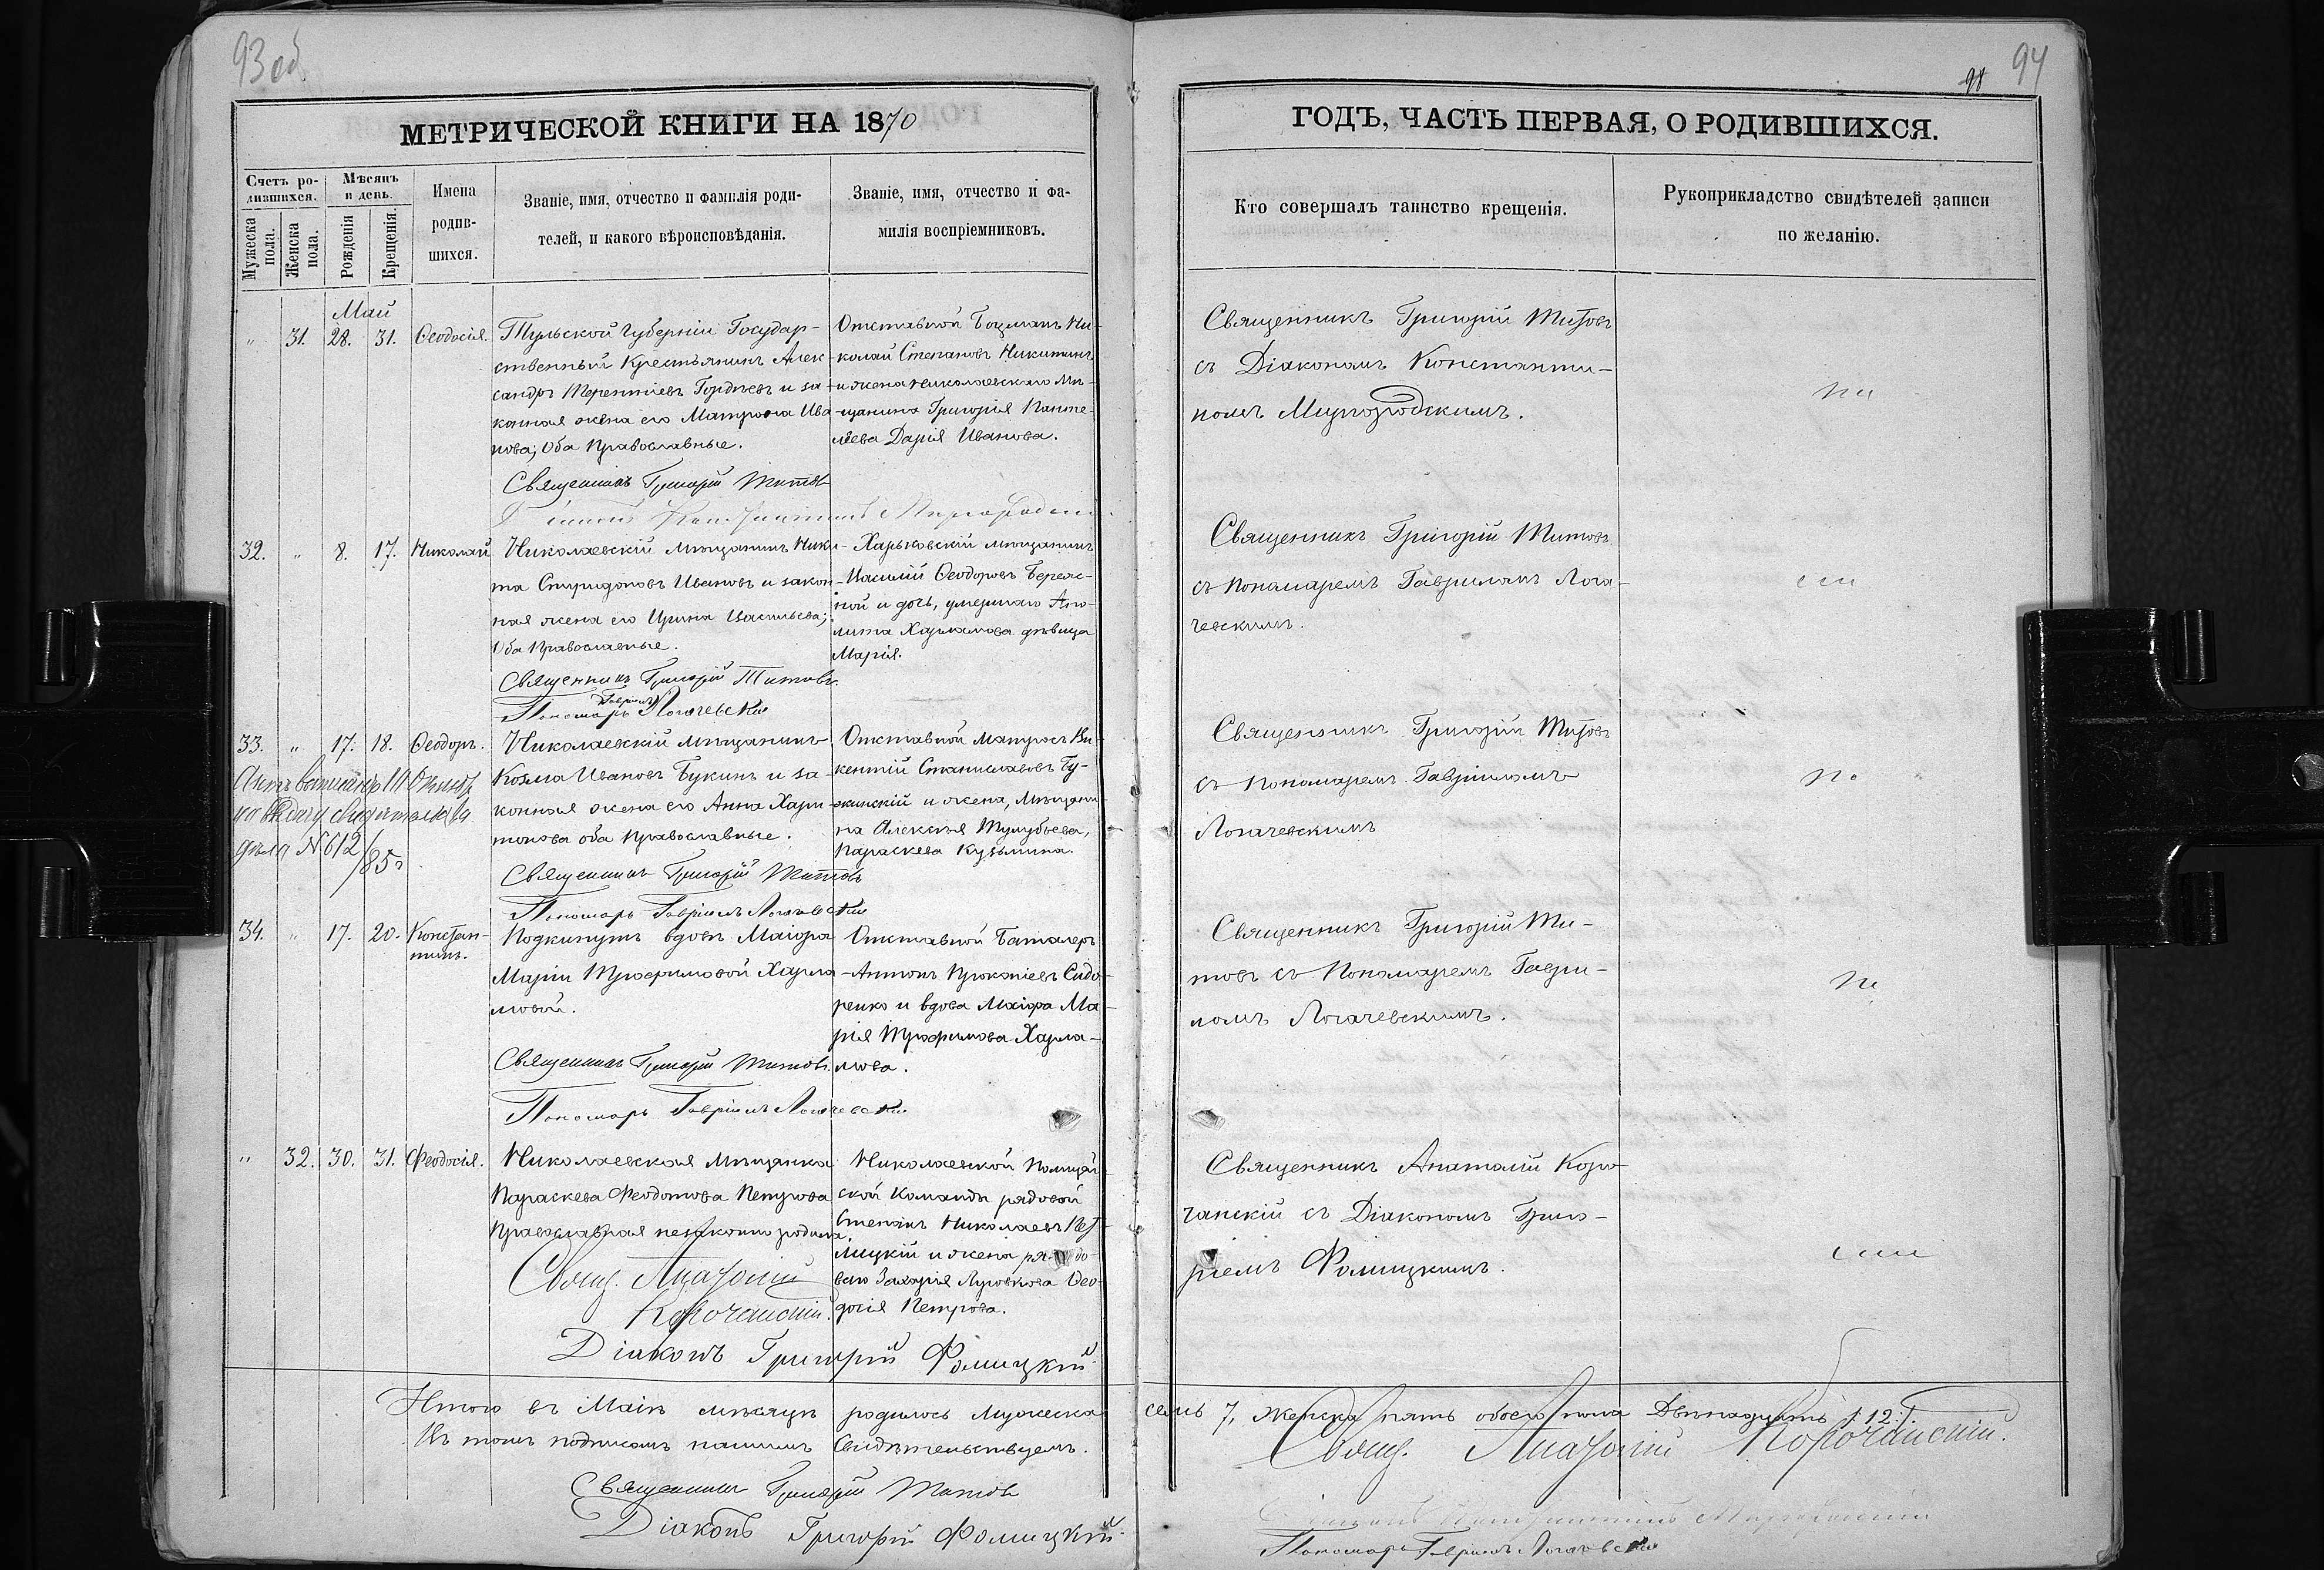 93 об
МЕТРИЧЕСКОЙ КНИГИ НА 1870
Счетъ ро-
дившихся.
Мѣсяцъ
и день.
Мужеска
пола.
Женска
пола.
Рожденія
Крещенія.
Имена
родив-
шихся.
Званіе, имя, отчество и фамилія роди-
телей, и какого вѣроисповѣданія.
Званіе, имя, отчество и фа-
милія воспріемниковъ.
Май
" 31. 28. 31. Ѳеодосія.
Тульской Губерніи Государ-
ственный Крестьянинъ Алек-
сандръ Терентіевъ Гордѣевъ и за-
конная жена его Матрона Ива-
нова; Оба Православные.
Священникъ Григорій Титовъ
Константинъ
Отставной Боцманъ Ни-
колай Степановъ Никитинъ
и жена Николаевскаго Мѣ-
щанина Григорія Панте-
лѣева Дарія Иванова.
32. " 8. 17. Николай
Николаевскій мѣщанинъ Ники-
та Спиридоновъ Ивановъ и закон-
ная жена его Ирина Васильева;
Оба Православные.
Священникъ Григорій Титовъ.
Гавріилъ
Пономарь Логачевскій
Харьковскій мѣщанинъ
Василій Ѳеодоровъ Береж-
ной и дочь, умершаго Апо-
лита Харламова дѣвица
Марія.
33. " 17. 18. Ѳеодоръ.
дѣла № 612/85 г
Николаевскій мѣщанинъ
Козма Ивановъ Букинъ и за-
конная жена его Анна Хари-
тонова оба Православные.
Священникъ Григорій Титовъ
Пономарь Гавріилъ Логачевскій
Отставной Матросъ Ви-
кентій Станиславовъ Бу-
жинскій и жена, Мѣщани-
на Алексѣя Тулубьева,
Параскева Кузьмина.
34. " 17. 20. Констан-
тинъ.
Подкинутъ вдовѣ Маіора
Маріи Трофимовой Харла-
мовой.
Священникъ Григорій Титовъ.
Пономарь Гавріилъ Логачевскій
Отставной Баталеръ
Антонъ Прокопіевъ Сидо-
ренко и вдова Маіора Ма-
рія Трофимова Харла-
мова.
" 32. 30. 31. Ѳеодосія.
Николаевская Мѣщанка
Параскева Ѳеодотова Петрова
Православная незаконно родила.
Свящ. Анатолій
Корочанскій.
Діаконъ Григорій Фомицкій
Николаевской Полицей-
ской Команды рядовой
Степанъ Николаевъ
и жена рядо-
ваго Захарія Ѳео-
досія Петрова.
Итого въ Маіѣ мѣсяцѣ родилось Мужеска
Въ томъ подписомъ нашимъ Свидѣтельствуемъ.
Священникъ Григорій Титовъ
Діаконъ Григорій Фомицкій
94
ГОДЪ, ЧАСТЬ ПЕРВАЯ, О РОДИВШИХСЯ.
Кто совершалъ таинство крещенія.
Рукоприкладство свидѣтелей записи
по желанію.
Священникъ Григорій Титовъ
съ Діакономъ Константи-
номъ Миргородскимъ.
Священникъ Григорій Титовъ
съ Пономаремъ Гавриломъ Лога-
чевскимъ.
Священникъ Григорій Титовъ
съ Пономаремъ Гавріиломъ
Логачевскимъ
Священникъ Григорій Ти-
товъ съ Пономаремъ Гаври-
ломъ Логачевскимъ.
Священникъ Анатолій Коро-
чанскій съ Діакономъ Григо-
ріемъ Фомицкимъ.
семь 7, женска пять обоего пола Двѣнадцать /:12:/.
Свящ. Анатолій Корочанскій.
Пономарь Гавріилъ Логачевскій